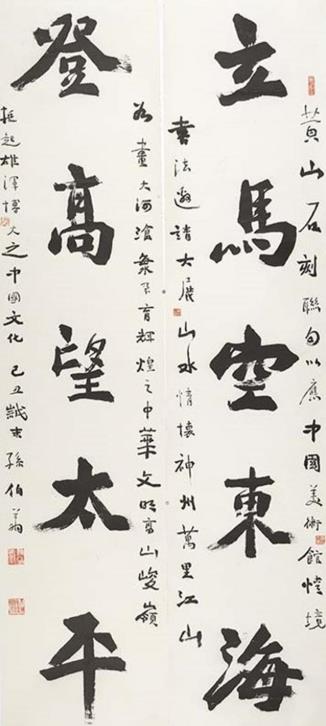 黄山石刻聯句以應中國美術館境
立馬空東海
書法邀請大展山水情懷神州萬里江山
如畫大河滄桑孕育輝煌之中華文明高山峻嶺
登高望太平
挺起雄渾博大之中國文化 己丑歲末孫伯翁